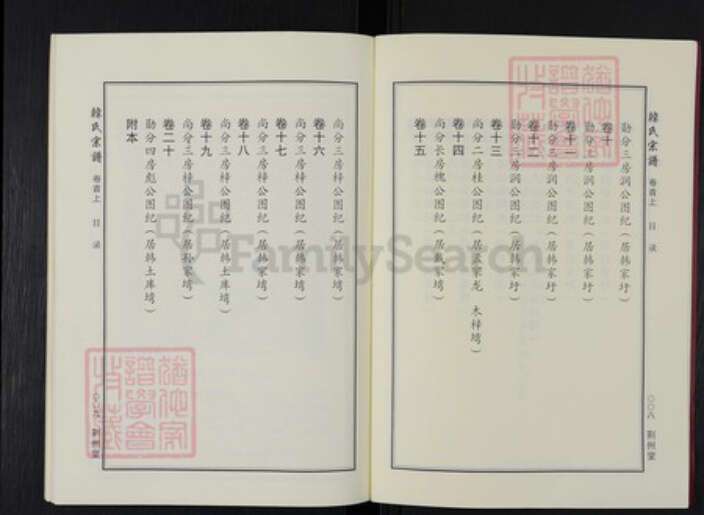 韓氏宗譜
卷首上
目录
〇〇八
荆州堂
勋分三房润公图纪（居韩家圩）
卷十
勋分三房润公图纪（居韩家圩）
卷十一
勋分三房润公图纪（居韩家圩）
卷十二
勋分三房润公图纪（居韩家圩）
卷十三
尚分二房桂公图纪（居孟家龙 木梓塆）
卷十四
尚分长房槐公图纪（居戴家塆）
卷十五
尚分三房梓公图纪（居韩家塆）
卷十六
尚分三房梓公图纪（居韩家塆）
卷十七
尚分三房梓公图纪（居韩家塆）
卷十八
尚分三房梓公图纪（居韩土库塆）
卷十九
尚分三房梓公图纪（居孙家塆）
卷二十
勋分四房彪公图纪（居韩土库塆）
附本
韓氏宗譜
卷首上
目录
〇〇九
荆州堂
FamilySearch